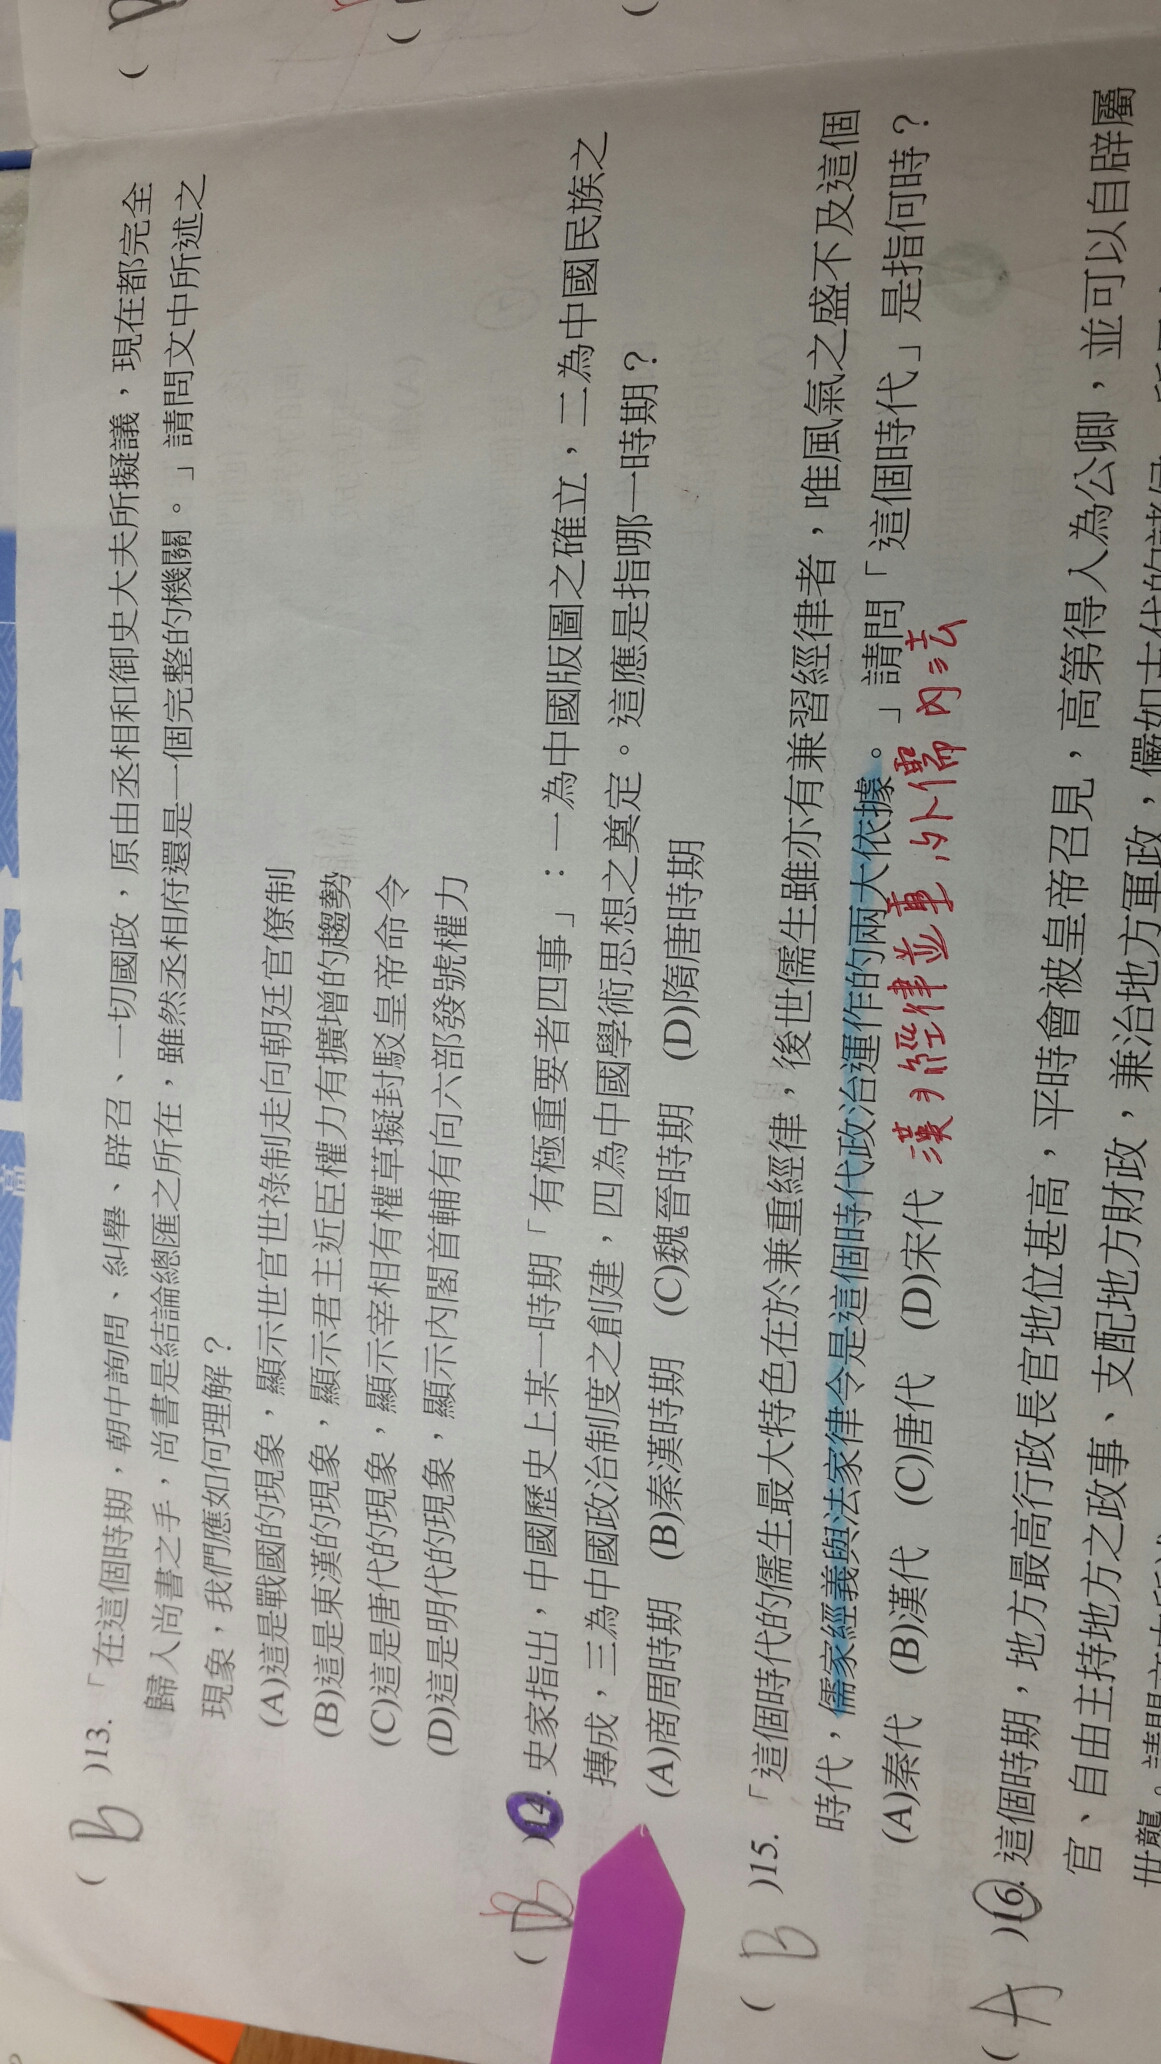 ( B )13.「在這個時期，朝中詢問、糾舉、辟召、一切國政，原由丞相和御史大夫所擬議，現在都完全
歸入尚書之手，尚書是結論總匯之所在，雖然丞相府還是一個完整的機關。」請問文中所述之
現象，我們應如何理解？
(A)這是戰國的現象，顯示世官世祿制走向朝廷官僚制
(B)這是東漢的現象，顯示君主近臣權力有擴增的趨勢
(C)這是唐代的現象，顯示宰相有權草擬封駁皇帝命令
(D)這是明代的現象，顯示內閣首輔有向六部發號權力
( B )14. 史家指出，中國歷史上某一時期「有極重要者四事」：一為中國版圖之確立，二為中國民族之
摶成，三為中國政治制度之創建，四為中國學術思想之奠定。這應是指哪一時期？
(A)商周時期 (B)秦漢時期 (C)魏晉時期 (D)隋唐時期
( B )15.「這個時代的儒生最大特色在於兼重經律，後世儒生雖亦有兼習經律者，唯風氣之盛不及這個
時代，儒家經義與法家律令是這個時代政治運作的兩大依據。」請問「這個時代」是指何時？
(A)秦代 (B)漢代 (C)唐代 (D)宋代
經律並重，外儒內法
( A )16. 這個時期，地方最高行政長官地位甚高，平時會被皇帝召見，高第得入為公卿，並可以自辟屬
官、自由主持地方之政事、支配地方財政，兼治地方軍政，儼如古代的諸侯